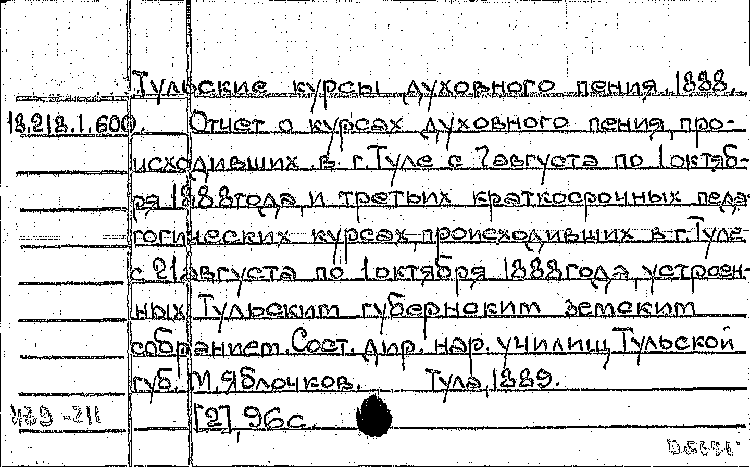 Тульские курсы духовного пения. 1888.
18.218.1.600. Отчет о курсах духовного пения, про-
исходивших в г. Туле с 7 августа по 1 октяб-
ря 1888 года, и третьих краткосрочных педа-
гогических курсах, происходивших в г. Туле
с 21 августа по 1 октября 1888 года, устроен-
ных Тульским губернским земским
собранием. Сост. дир. нар. училищ Тульской
губ. М. Яблочков. Тула, 1889.
[2], 96 с.